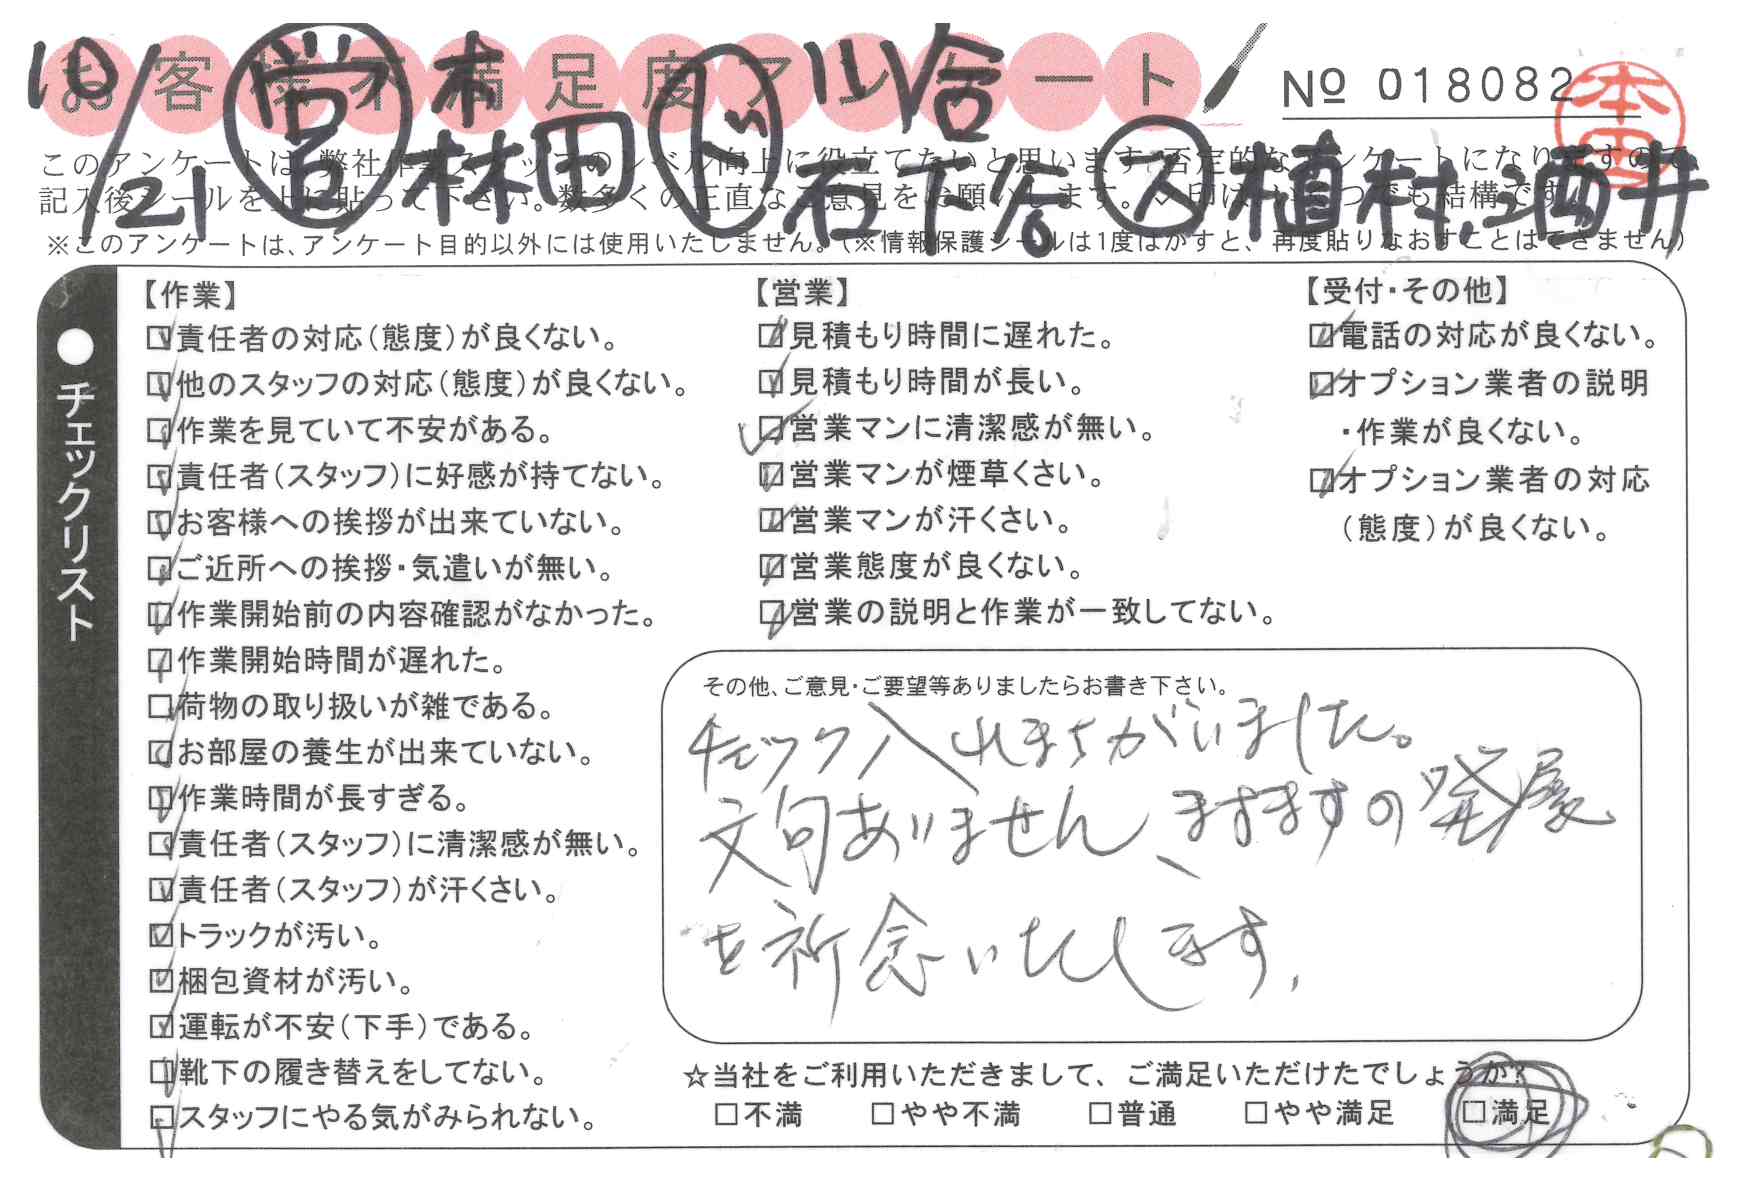 お客様不満足度アンケート
№ 018082
本田
10/21 営 木 林田 ド 川合 石下谷 ス 植村、酒井
このアンケートは、弊社作業スタッフのレベル向上に役立てたいと思います。否定的なアンケートになりますので、
記入後シールを上に貼って下さい。数多くの正直なご意見をお願いします。✓印は、いくつでも結構です。
※このアンケートは、アンケート目的以外には使用いたしません。(※情報保護シールは1度はがすと、再度貼りなおすことはできません)
●チェックリスト
【作業】
☑責任者の対応(態度)が良くない。
☑他のスタッフの対応(態度)が良くない。
☑作業を見ていて不安がある。
☑責任者(スタッフ)に好感が持てない。
☑お客様への挨拶が出来ていない。
☑ご近所への挨拶・気遣いが無い。
☑作業開始前の内容確認がなかった。
☑作業開始時間が遅れた。
☑荷物の取り扱いが雑である。
☑お部屋の養生が出来ていない。
☑作業時間が長すぎる。
☑責任者(スタッフ)に清潔感が無い。
☑責任者(スタッフ)が汗くさい。
☑トラックが汚い。
☑梱包資材が汚い。
☑運転が不安(下手)である。
☑靴下の履き替えをしてない。
☑スタッフにやる気がみられない。
【営業】
☑見積もり時間に遅れた。
☑見積もり時間が長い。
☑営業マンに清潔感が無い。
☑営業マンが煙草くさい。
☑営業マンが汗くさい。
☑営業態度が良くない。
☑営業の説明と作業が一致してない。
【受付・その他】
☑電話の対応が良くない。
☑オプション業者の説明
・作業が良くない。
☑オプション業者の対応
(態度)が良くない。
その他、ご意見・ご要望等ありましたらお書き下さい。
チェック入れまちがいました。
文句ありません、ますますの発展
を祈念いたします。
☆当社をご利用いただきまして、ご満足いただけたでしょうか?
□不満 □やや不満 □普通 □やや満足 □満足